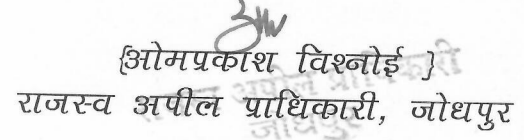 {ओमप्रकाश विश्नोई }
राजस्व अपील प्राधिकारी, जोधपुर